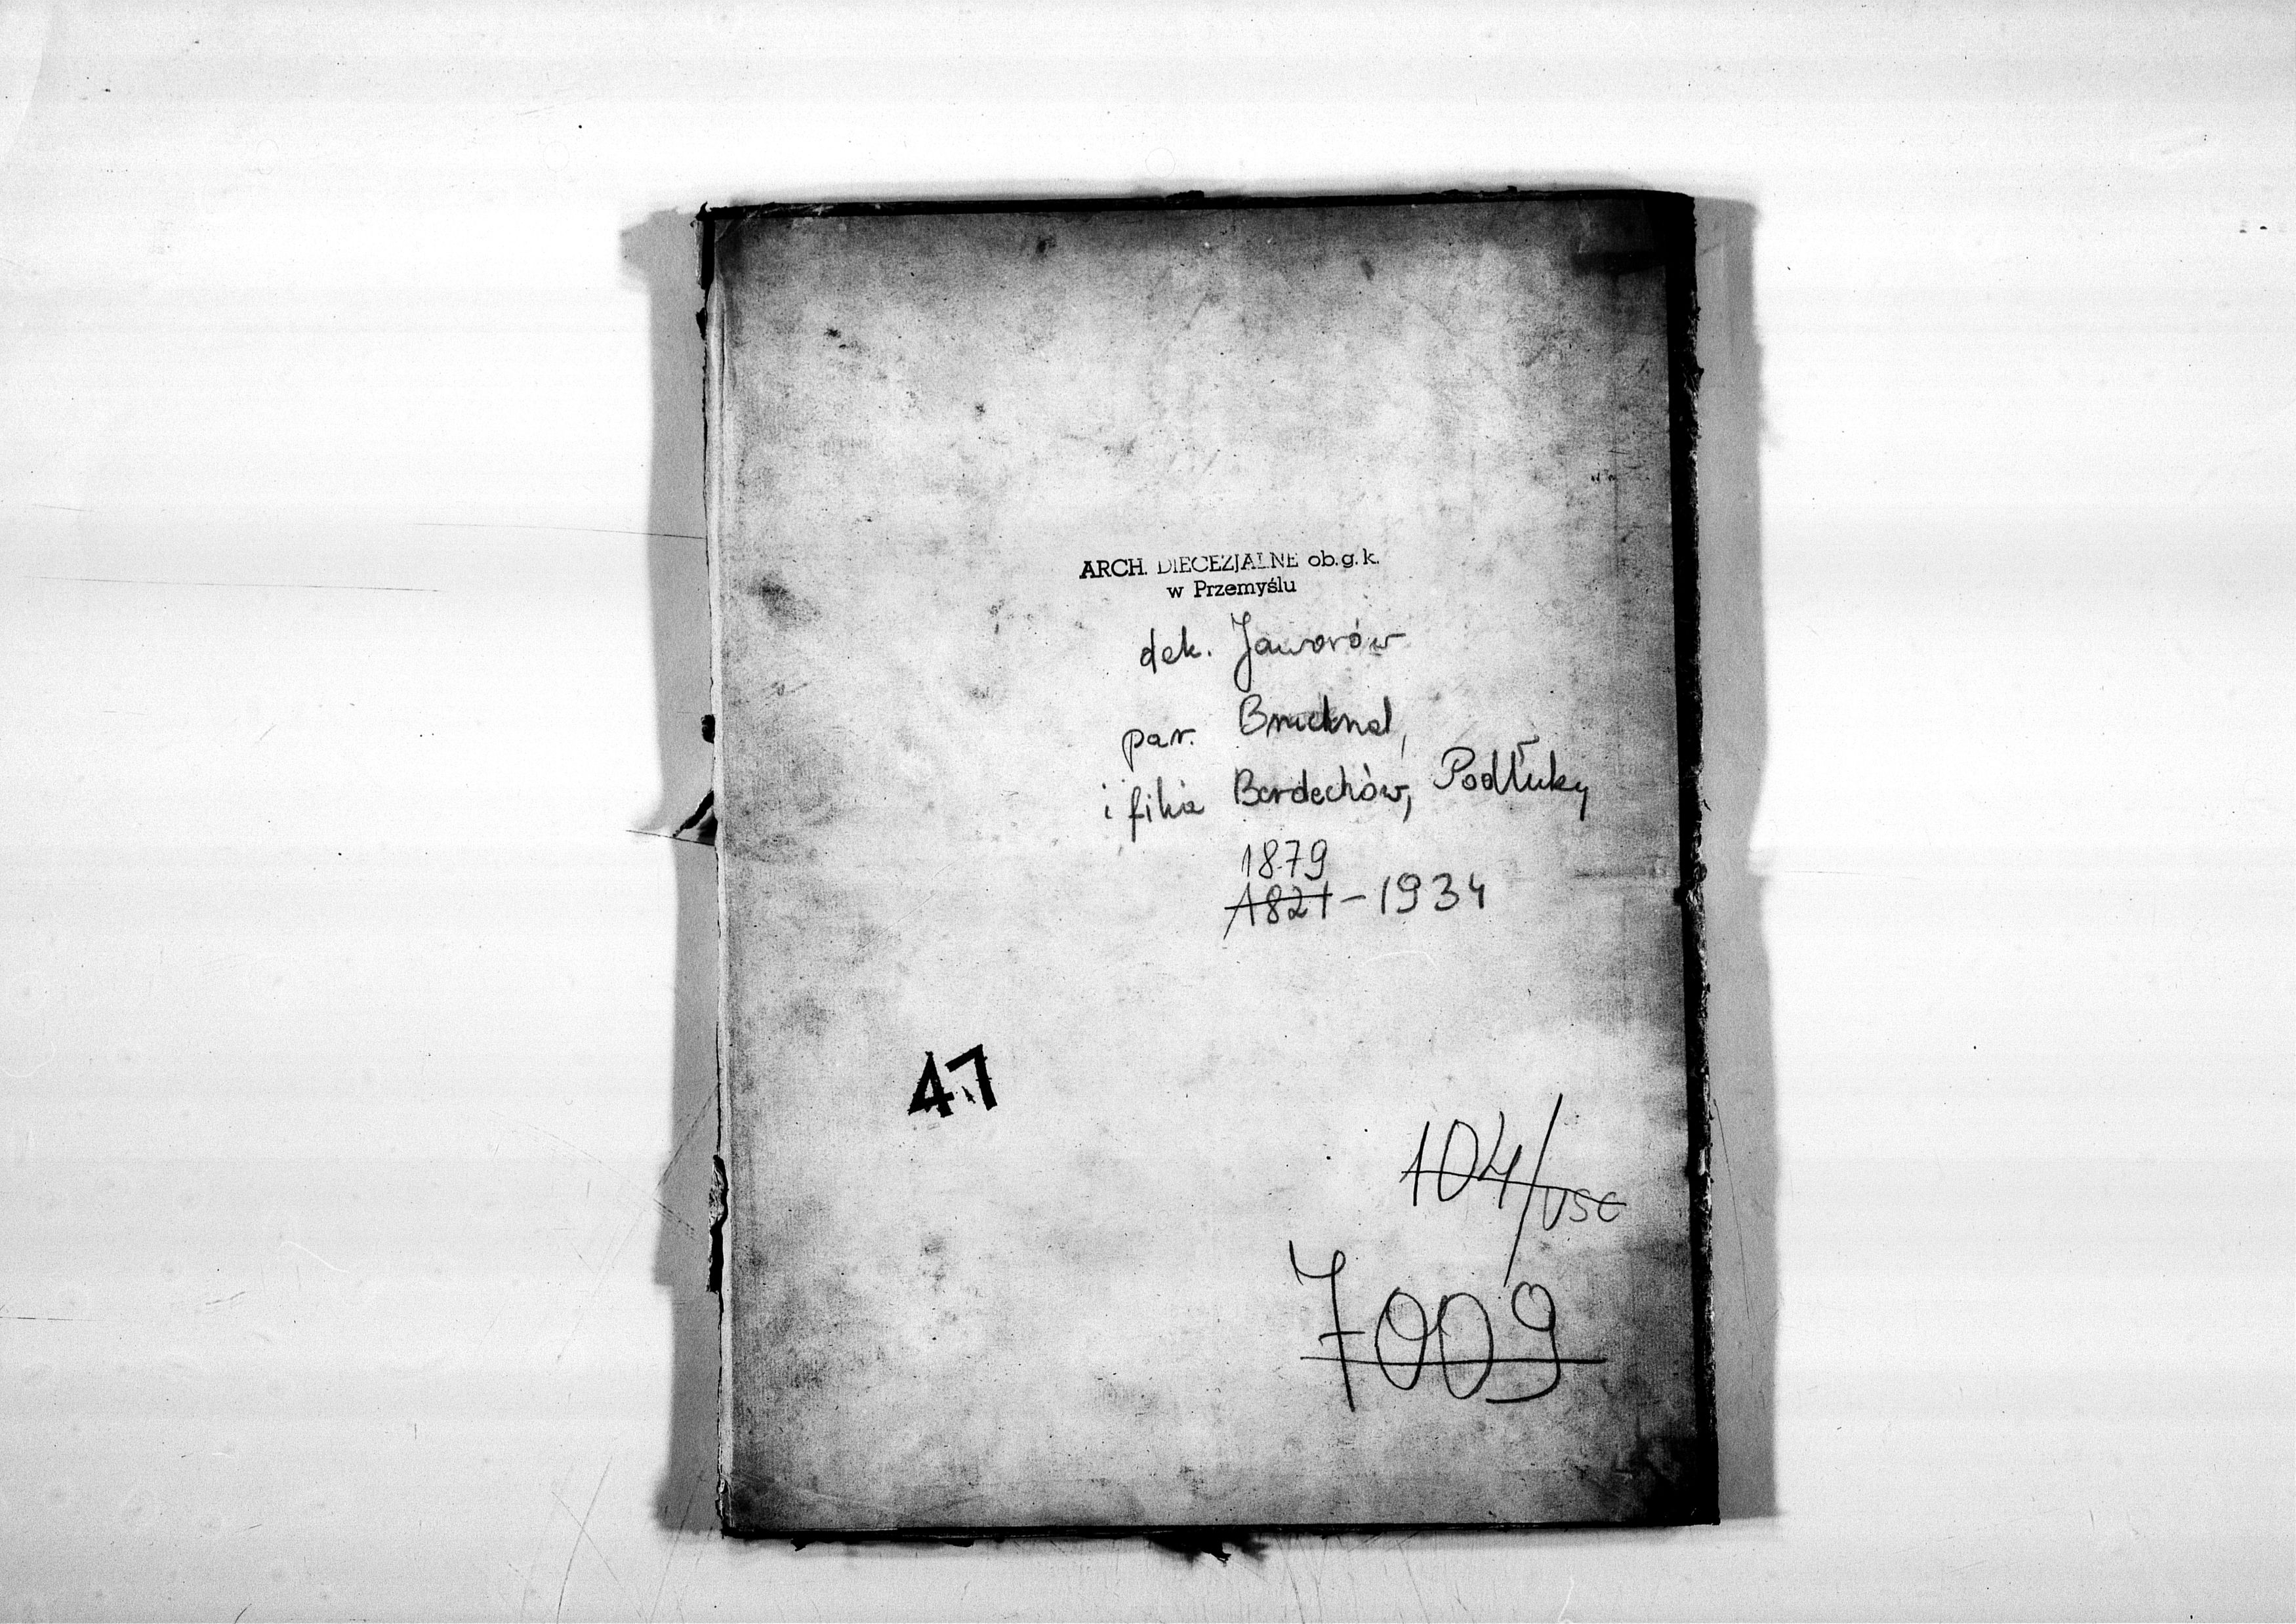 ARCH. DIECEZJALNE ob. g. k.
w Przemyślu
dek. Jaworów
par. Bruchnal,
i filia Berdechów, Podłuky
1879
1821 - 1934
47
104/USC
7009